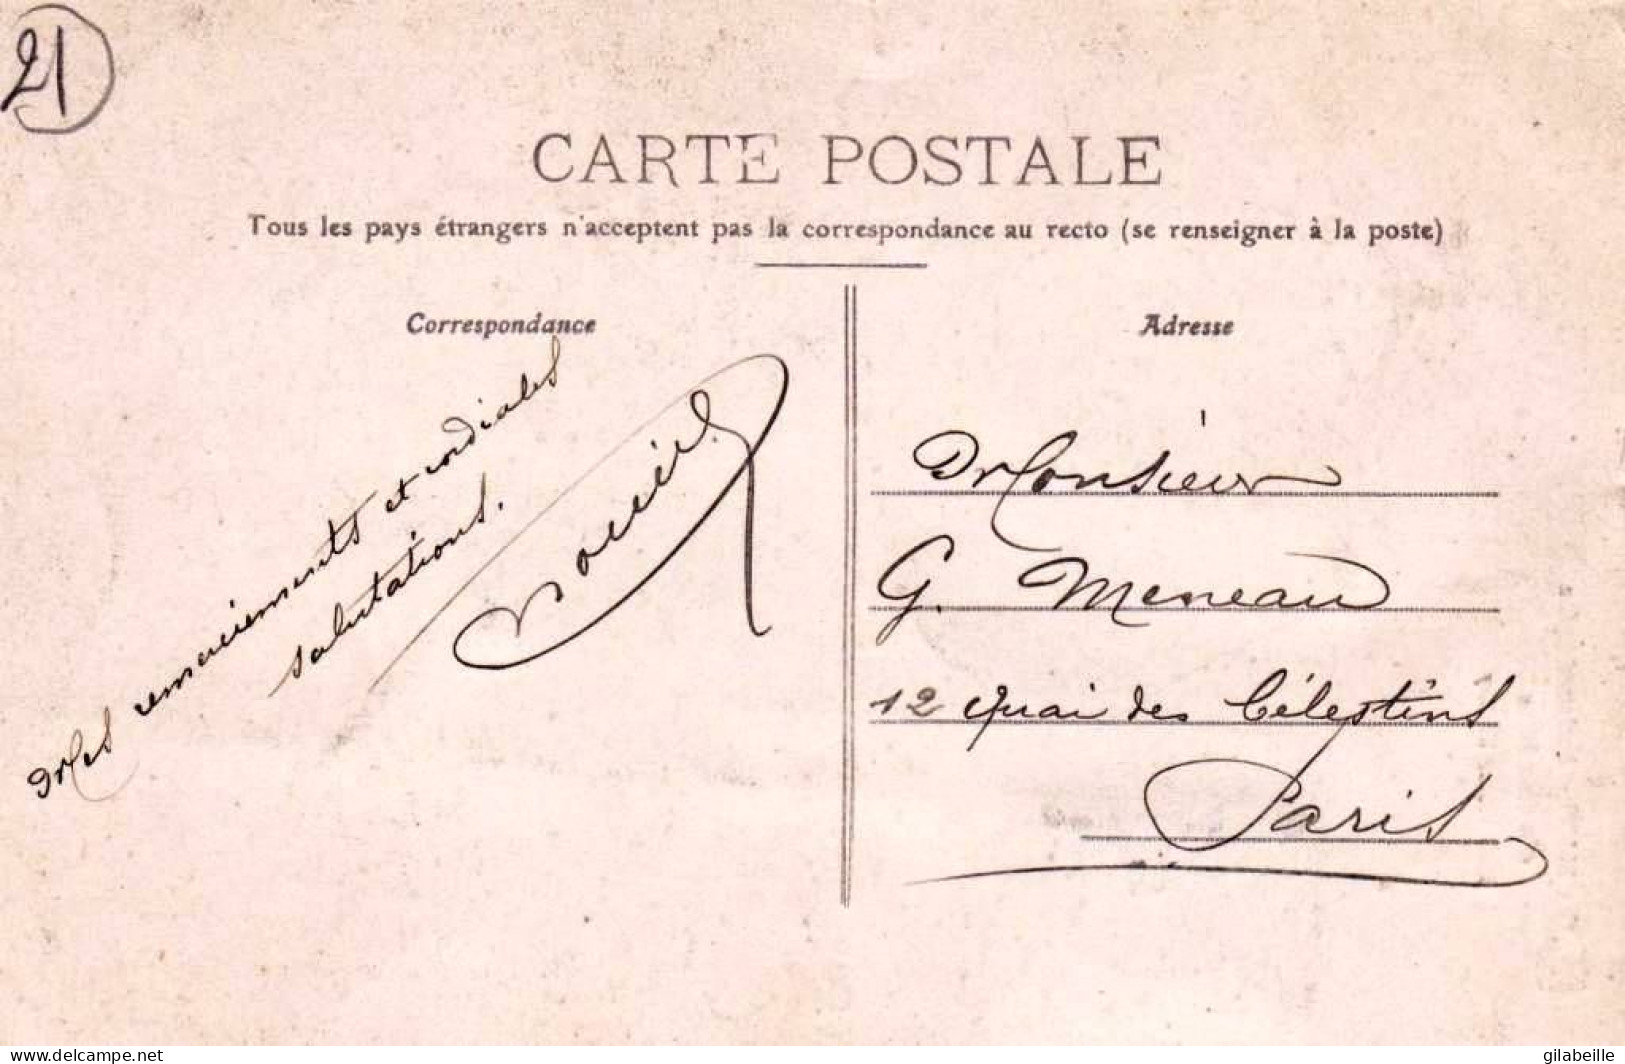 21
CARTE POSTALE
Tous les pays étrangers n'acceptent pas la correspondance au recto (se renseigner à la poste)
Correspondance
Mes remerciements et cordiales
salutations.
Adresse
Monsieur
G. Meneau
12 Quai des Célestins
Paris
www.delcampe.net
gilabeille